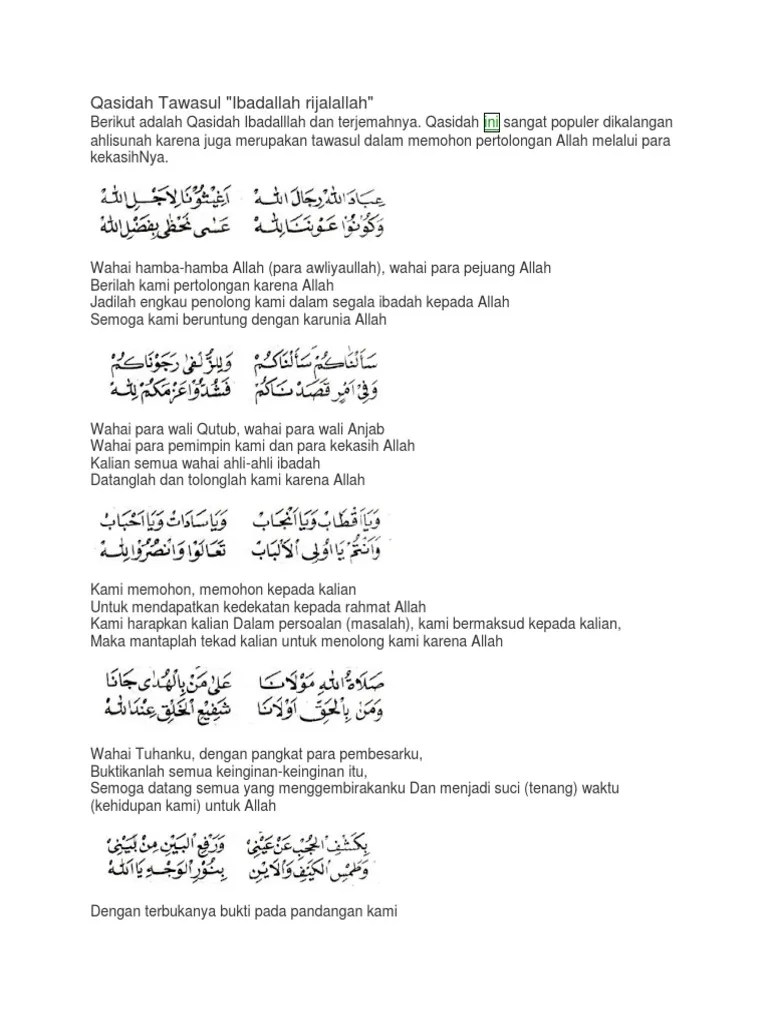 Qasidah Tawasul "Ibadallah rijalallah"
Berikut adalah Qasidah Ibadalllah dan terjemahnya. Qasidah ini sangat populer dikalangan
ahlisunah karena juga merupakan tawasul dalam memohon pertolongan Allah melalui para
kekasihNya.
عِبَادَاللهْ رِجَالَ اللهْ اَغِيْثُوْنَا لِاَجْلِ اللهْ
وَكُوْنُوْا عَوْنَنَا لِلهْ عَسٰى نَحْظٰى بِفَضْلِ اللهْ
Wahai hamba-hamba Allah (para awliyaullah), wahai para pejuang Allah
Berilah kami pertolongan karena Allah
Jadilah engkau penolong kami dalam segala ibadah kepada Allah
Semoga kami beruntung dengan karunia Allah
سَأَلْنَاكُمْ سَأَلْنَاكُمْ وَلِلزُّلْفٰى رَجَوْنَاكُمْ
وَفِيْ اَمْرٍ قَصَدْنَاكُمْ فَشُدُّوْا عَزْمَكُمْ لِلهْ
Wahai para wali Qutub, wahai para wali Anjab
Wahai para pemimpin kami dan para kekasih Allah
Kalian semua wahai ahli-ahli ibadah
Datanglah dan tolonglah kami karena Allah
وَيَااَقْطَابْ وَيَااَنْجَابْ وَيَاسَادَاتْ وَيَااَحْبَابْ
وَاَنْتُمْ يَااُولِى الْاَلْبَابْ تَعَالَوْا وَانْصُرُوْا لِلهْ
Kami memohon, memohon kepada kalian
Untuk mendapatkan kedekatan kepada rahmat Allah
Kami harapkan kalian Dalam persoalan (masalah), kami bermaksud kepada kalian,
Maka mantaplah tekad kalian untuk menolong kami karena Allah
صَلَاةُ اللهِ مَوْلَانَا عَلٰى مَنْ بِالْهُدٰى جَانَا
وَمَنْ بِالْحَقِّ اَوْلَانَا شَفِيْعِ الْخَلْقِ عِنْدَاللهْ
Wahai Tuhanku, dengan pangkat para pembesarku,
Buktikanlah semua keinginan-keinginan itu,
Semoga datang semua yang menggembirakanku Dan menjadi suci (tenang) waktu
(kehidupan kami) untuk Allah
بِكَشْفِ الْحُجْبِ عَنْ عَيْنِيْ وَرَفْعِ الْبَيْنِ مِنْ بَيْنِيْ
وَطَمْسِ الْكَيْفِ وَالْاَيْنِ بِنُوْرِ الْوَجْهِ يَااَللهْ
Dengan terbukanya bukti pada pandangan kami